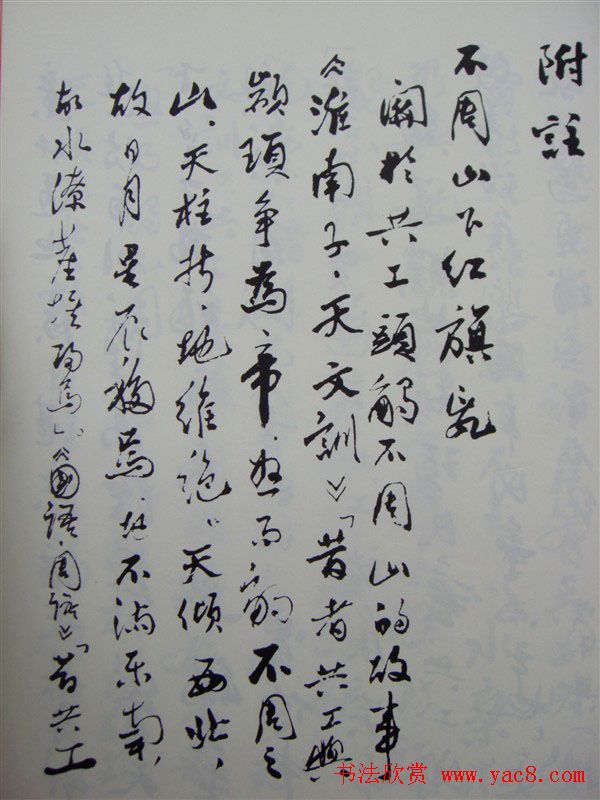 附註
不周山下红旗乱
關於共工頭觸不周山的故事
《淮南子·天文訓》「昔者共工與
顓頊争為帝，怒而觸不周之
山，天柱折，地維絶。天傾西北，
故日月星辰移焉；地不满东南，
故水潦塵埃歸焉。」《國語·周語》「昔共工
书法欣赏 www.yac8.com